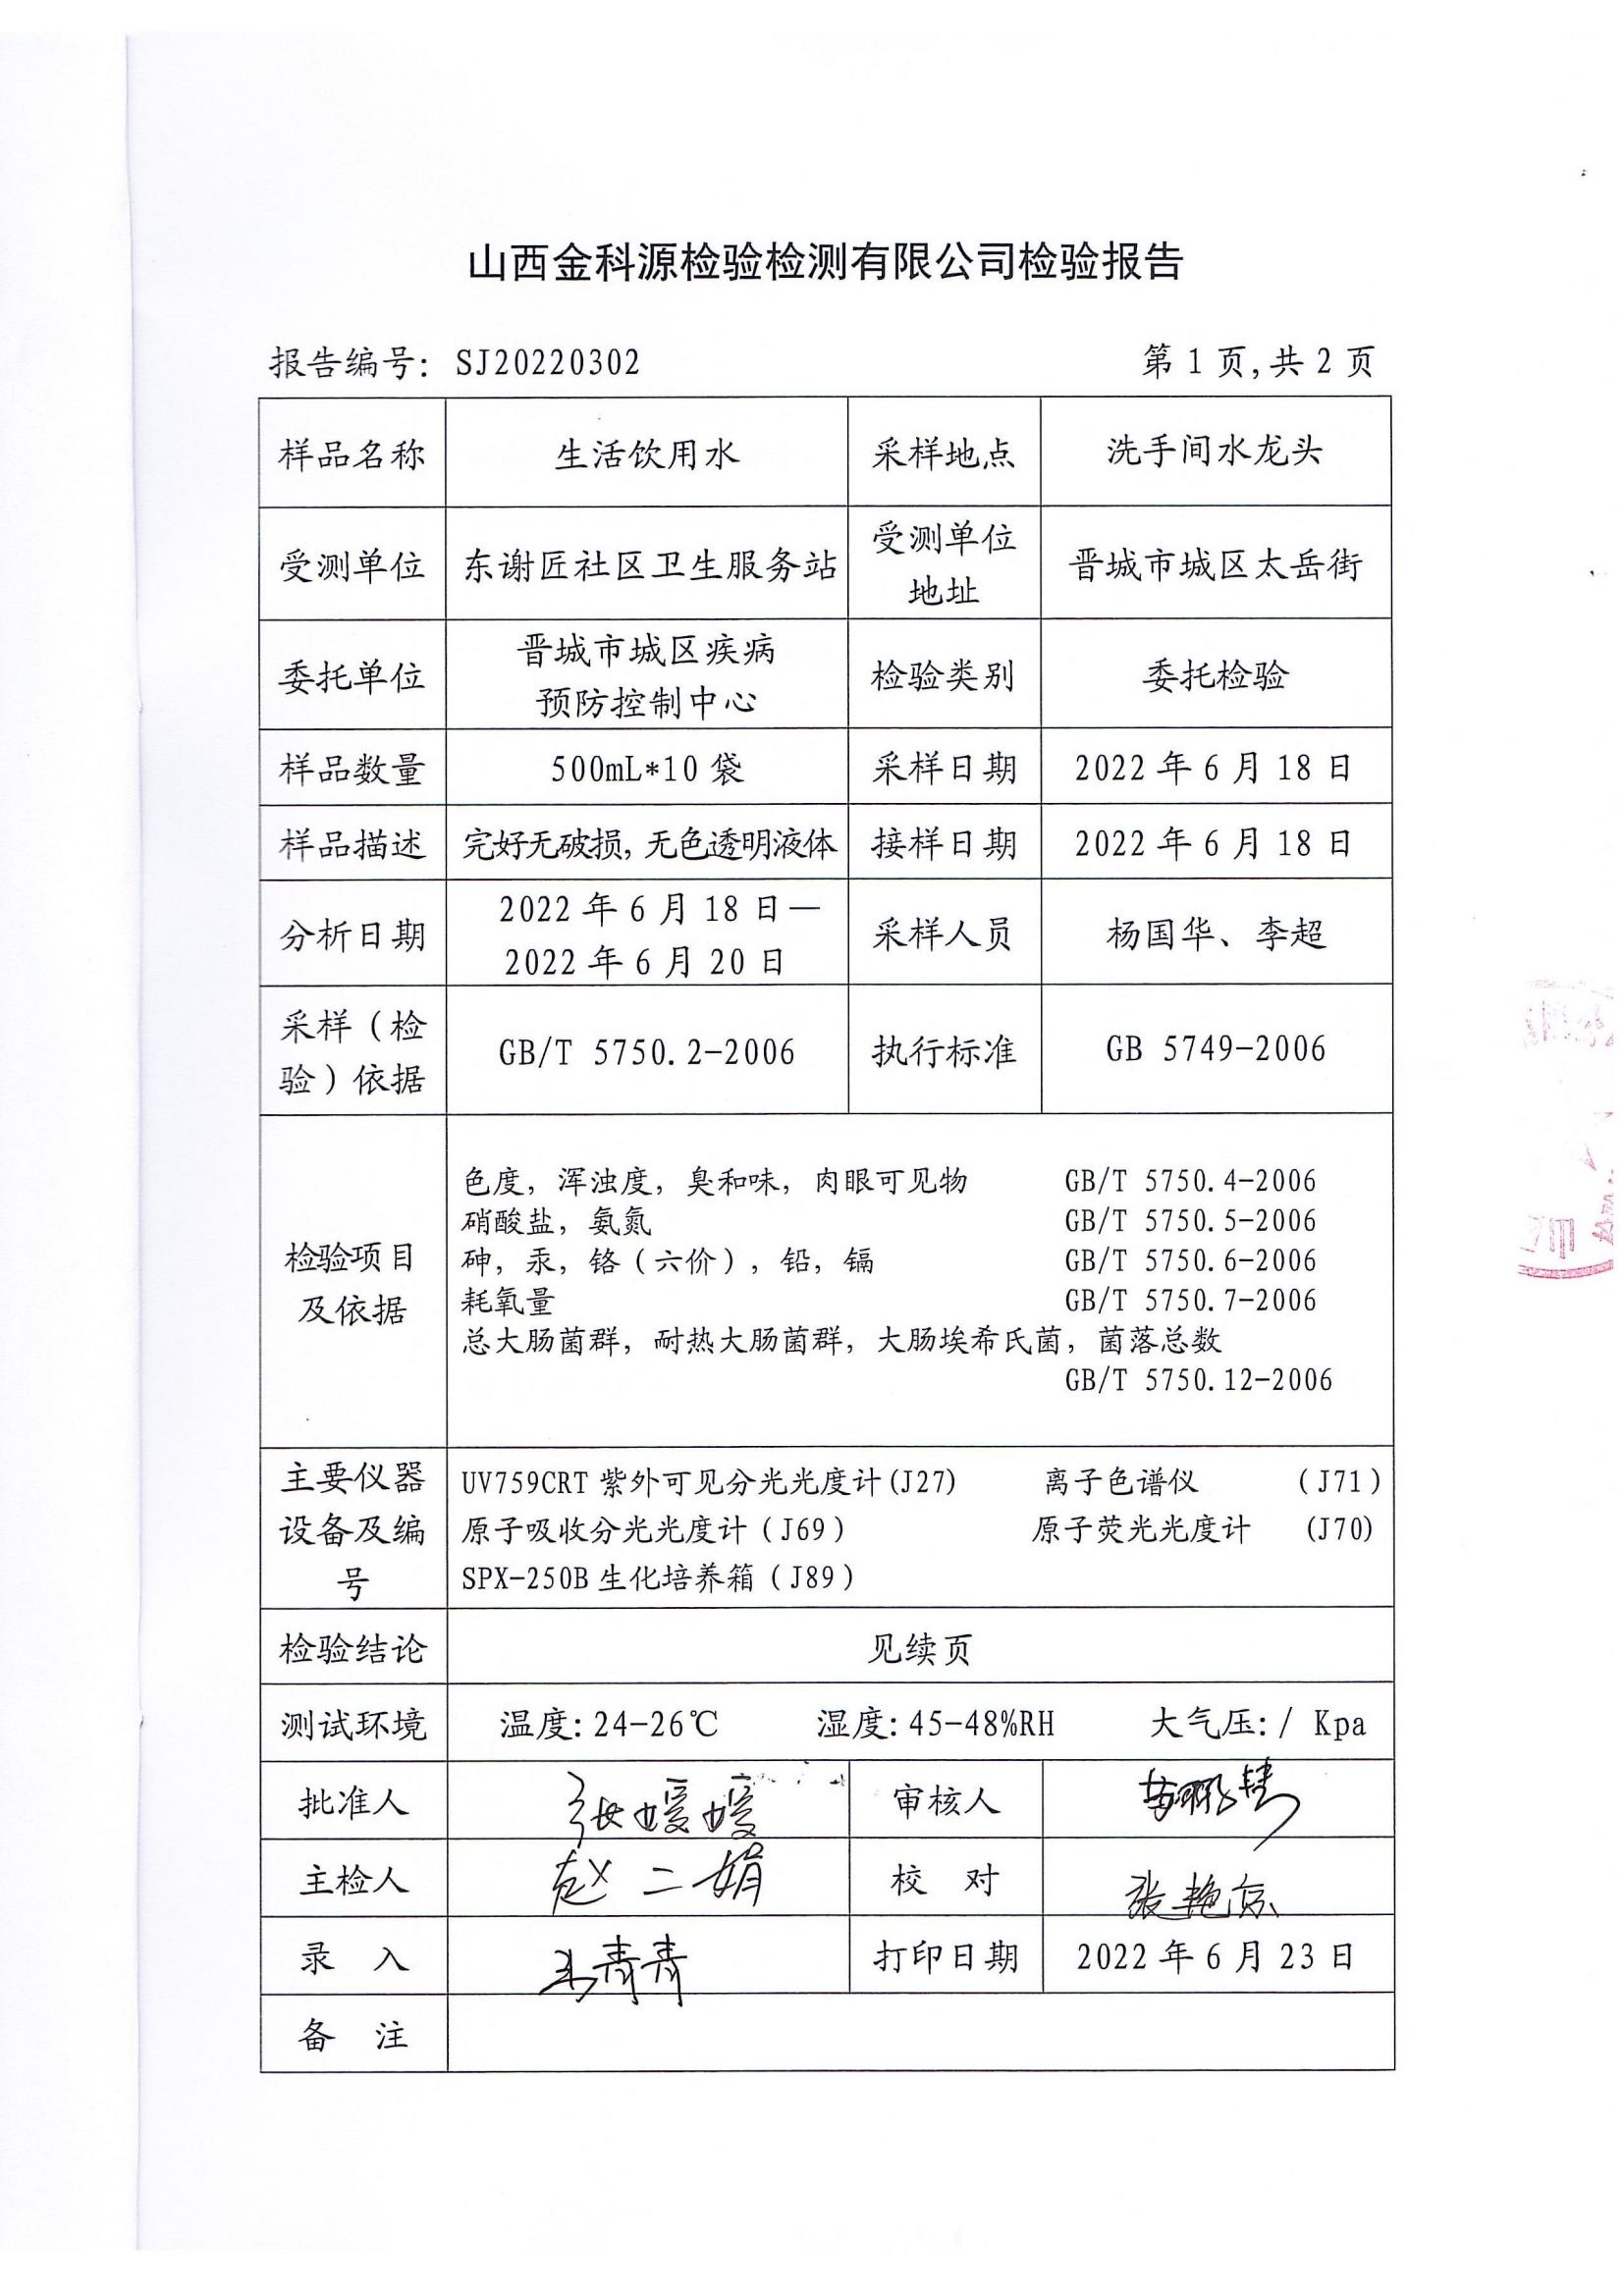 山西金科源检验检测有限公司检验报告
报告编号: SJ20220302 第 1 页,共 2 页
样品名称 生活饮用水 采样地点 洗手间水龙头
受测单位 东谢匠社区卫生服务站 受测单位
地址 晋城市城区太岳街
委托单位 晋城市城区疾病
预防控制中心 检验类别 委托检验
样品数量 500mL*10 袋 采样日期 2022 年 6 月 18 日
样品描述 完好无破损,无色透明液体 接样日期 2022 年 6 月 18 日
分析日期 2022 年 6 月 18 日—
2022 年 6 月 20 日 采样人员 杨国华、李超
采样（检
验）依据 GB/T 5750.2-2006 执行标准 GB 5749-2006
检验项目
及依据
色度，浑浊度，臭和味，肉眼可见物 GB/T 5750.4-2006
硝酸盐，氨氮 GB/T 5750.5-2006
砷，汞，铬（六价），铅，镉 GB/T 5750.6-2006
耗氧量 GB/T 5750.7-2006
总大肠菌群，耐热大肠菌群，大肠埃希氏菌，菌落总数
GB/T 5750.12-2006
主要仪器
设备及编
号
UV759CRT 紫外可见分光光度计(J27) 离子色谱仪 （J71）
原子吸收分光光度计（J69） 原子荧光光度计 (J70)
SPX-250B 生化培养箱（J89）
检验结论 见续页
测试环境 温度: 24-26℃ 湿度: 45-48%RH 大气压: / Kpa
批准人 张媛媛 审核人
主检人 赵二娟 校 对
录 入 王青青 打印日期 2022 年 6 月 23 日
备 注